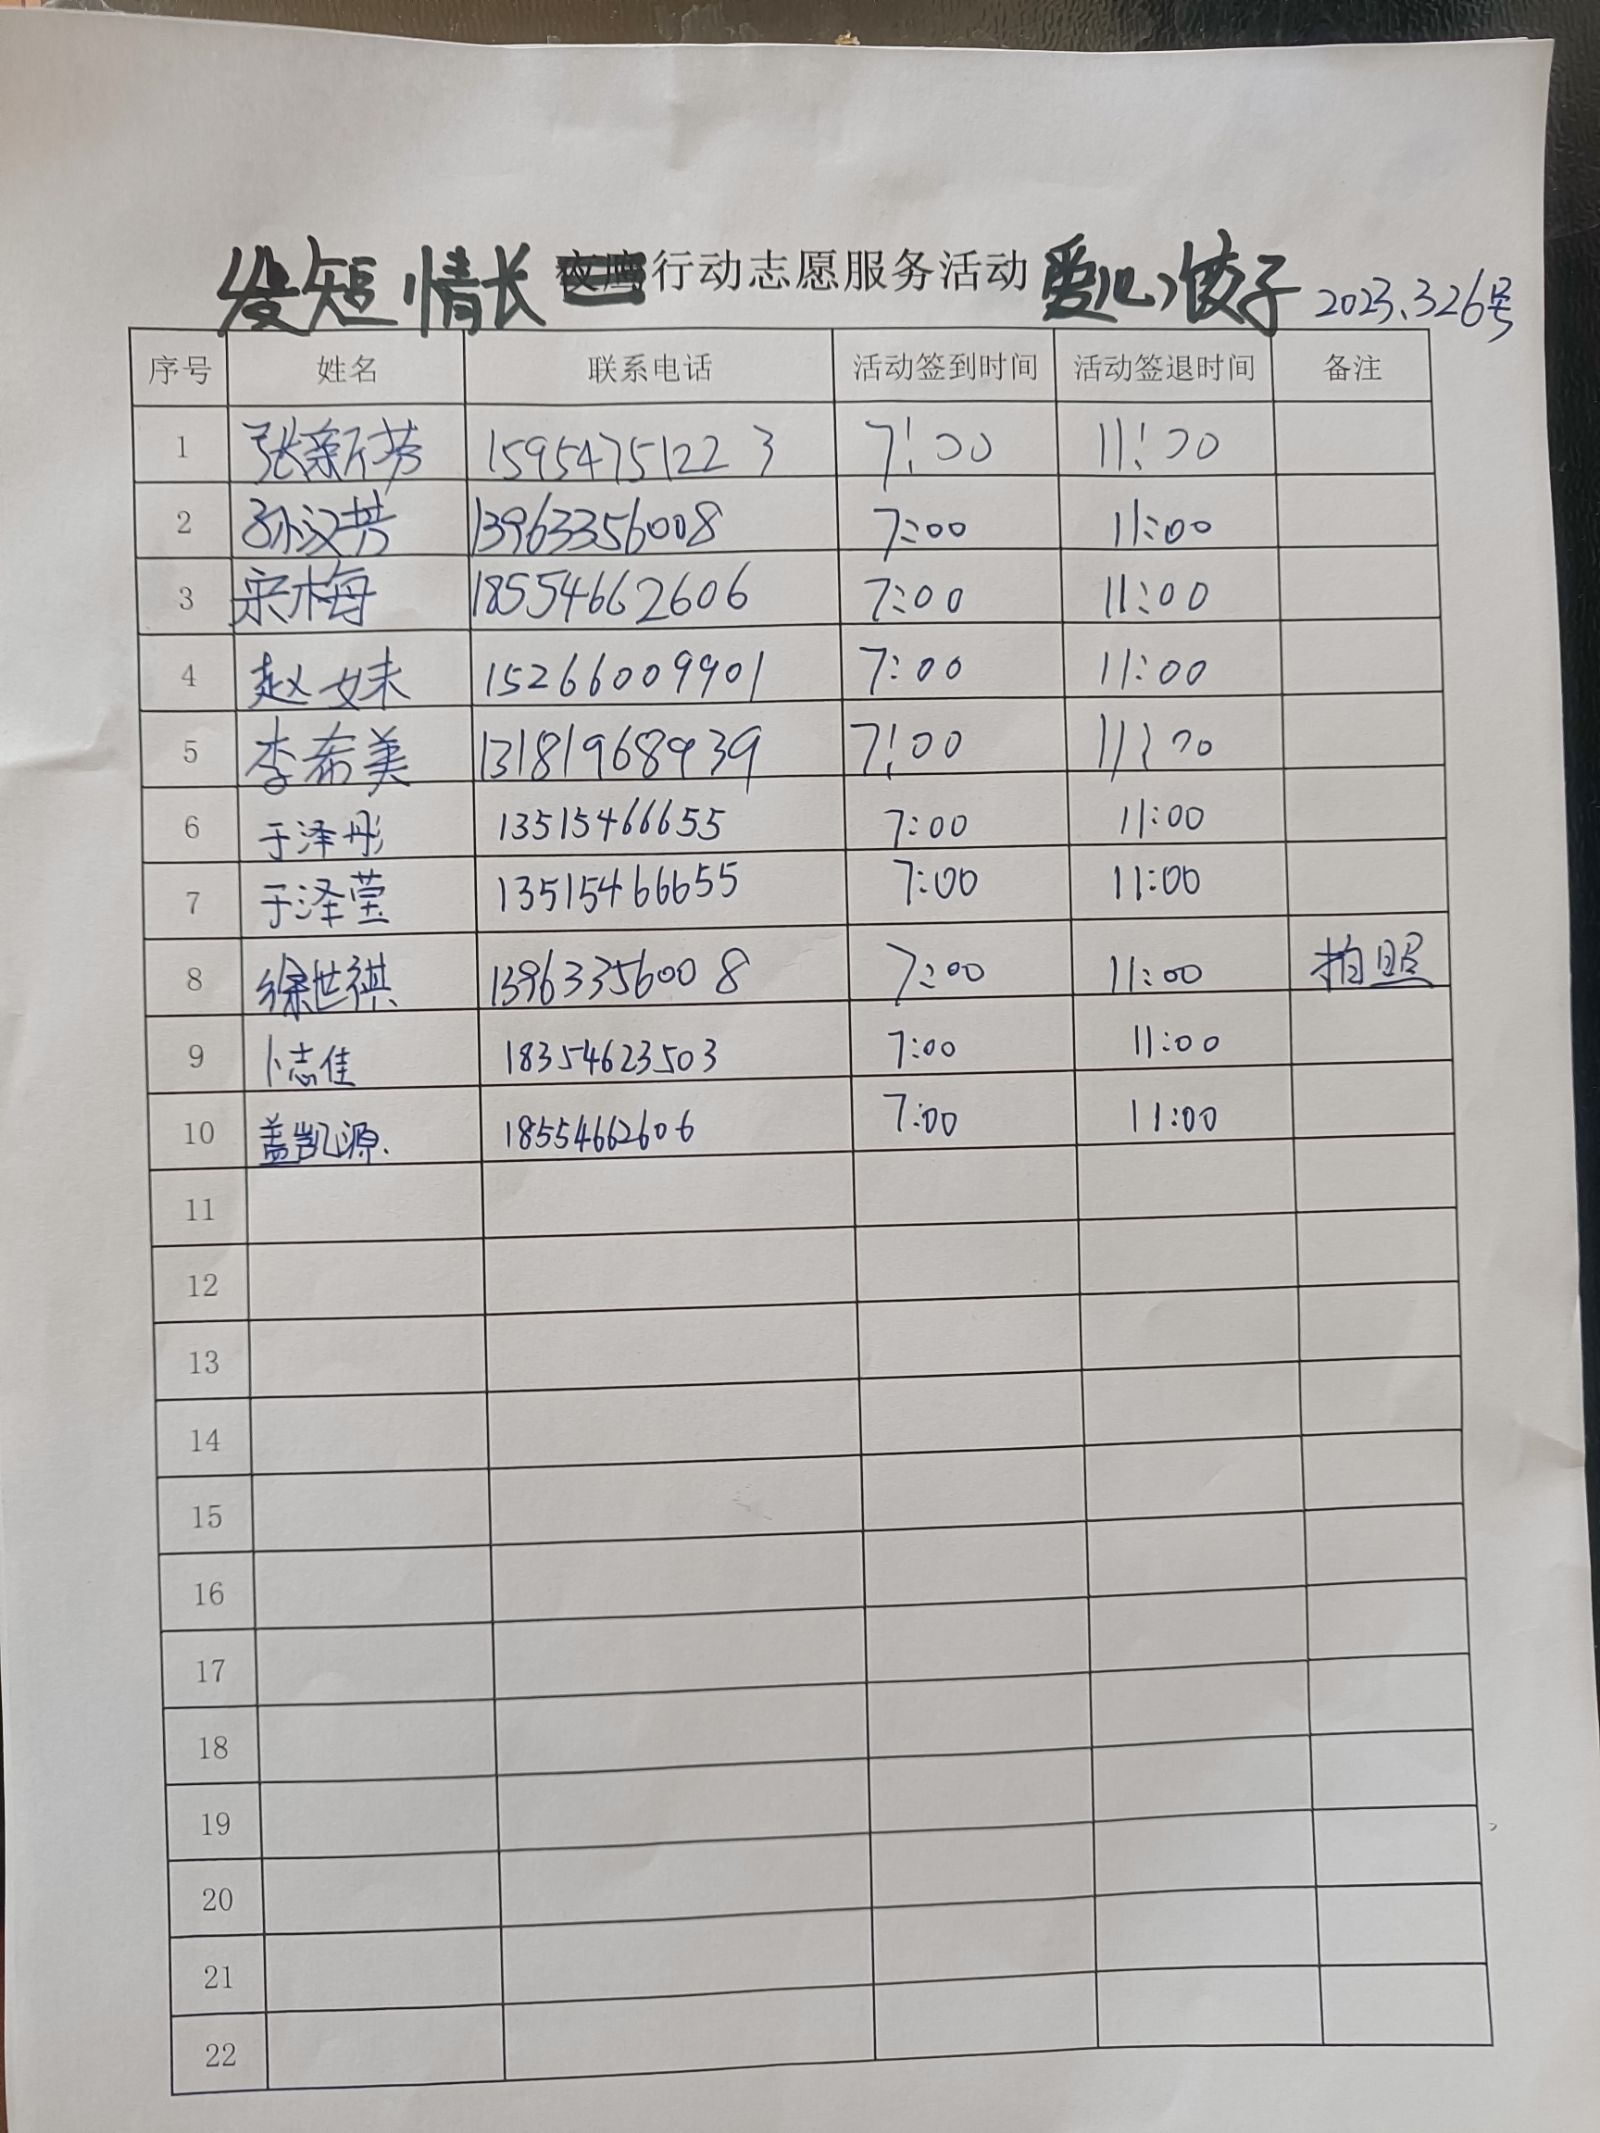 发短情长 行动志愿服务活动 爱心饺子 2023.3.26号
序号 姓名 联系电话 活动签到时间 活动签退时间 备注
1 张新芳 15954751223 7:00 11:00
2 孙汉芸 13963356008 7:00 11:00
3 宋梅 18554662606 7:00 11:00
4 赵妹 15266009901 7:00 11:00
5 李希美 13181968939 7:00 11:00
6 于泽彤 13515466655 7:00 11:00
7 于泽莹 13515466655 7:00 11:00
8 徐世祺 13963356008 7:00 11:00 拍照
9 卜志佳 18354623503 7:00 11:00
10 盖凯源. 18554662606 7:00 11:00
11
12
13
14
15
16
17
18
19
20
21
22